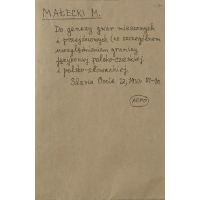 MAŁECKI M.
Do genezy gwar mieszanych
i przejściowych (ze szczególnym
uwzględnieniem granicy
językowej polsko-czeskiej
i polsko-słowackiej.
Slavia Occid. 12, 1933